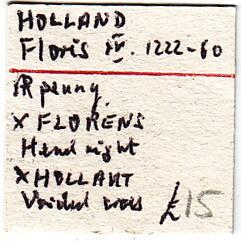 HOLLAND
Floris IV. 1222-60
AR penny.
X FLORENS
Head right
X HOLLANT
Voided cross
£15